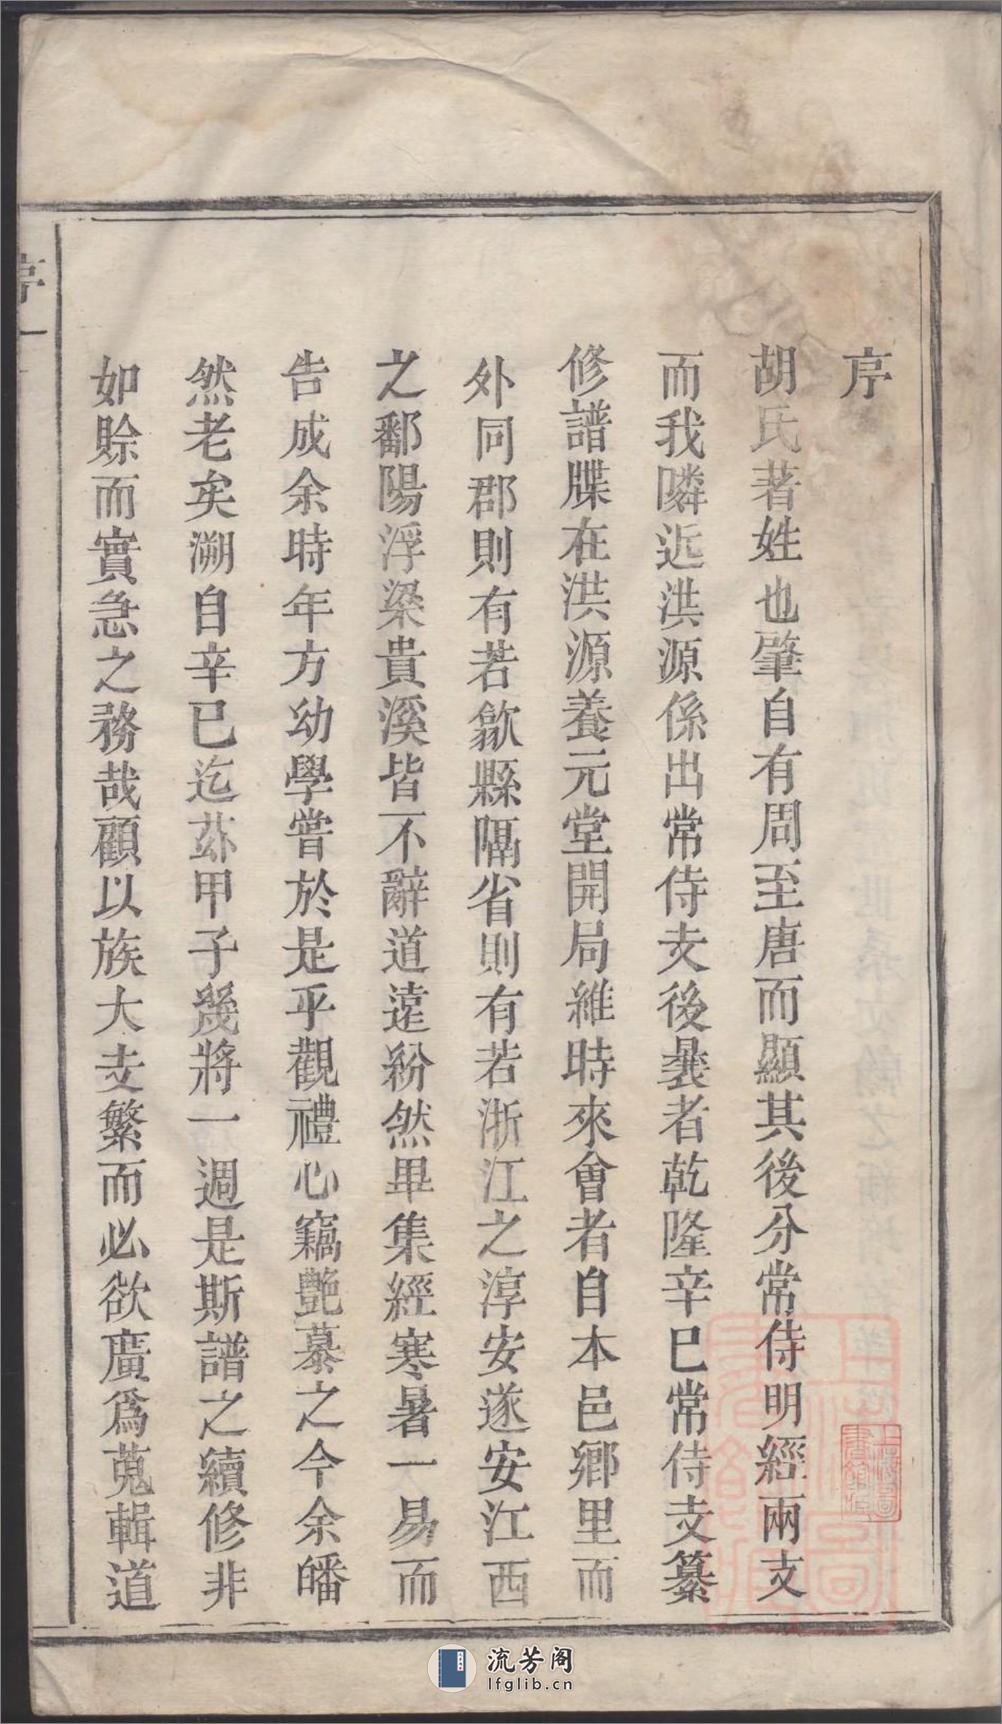 序
胡氏著姓也肇自有周至唐而顯其後分常侍明經兩支
而我隣近洪源係出常侍支後曩者乾隆辛巳常侍支纂
修譜牒在洪源養元堂開局維時來會者自本邑鄉里而
外同郡則有若歙縣隔省則有若浙江之淳安遂安江西
之鄱陽浮梁貴溪皆不辭道遠紛然畢集經寒暑一易而
告成余時年方幼學嘗於是乎觀禮心竊艷慕之今余皤
然老矣溯自辛巳迄茲甲子幾將一週是斯譜之續修非
如賒而實急之務哉顧以族大支繁而必欲廣爲蒐輯道
序一
上海圖書館藏
流芳阁
lfglib.cn